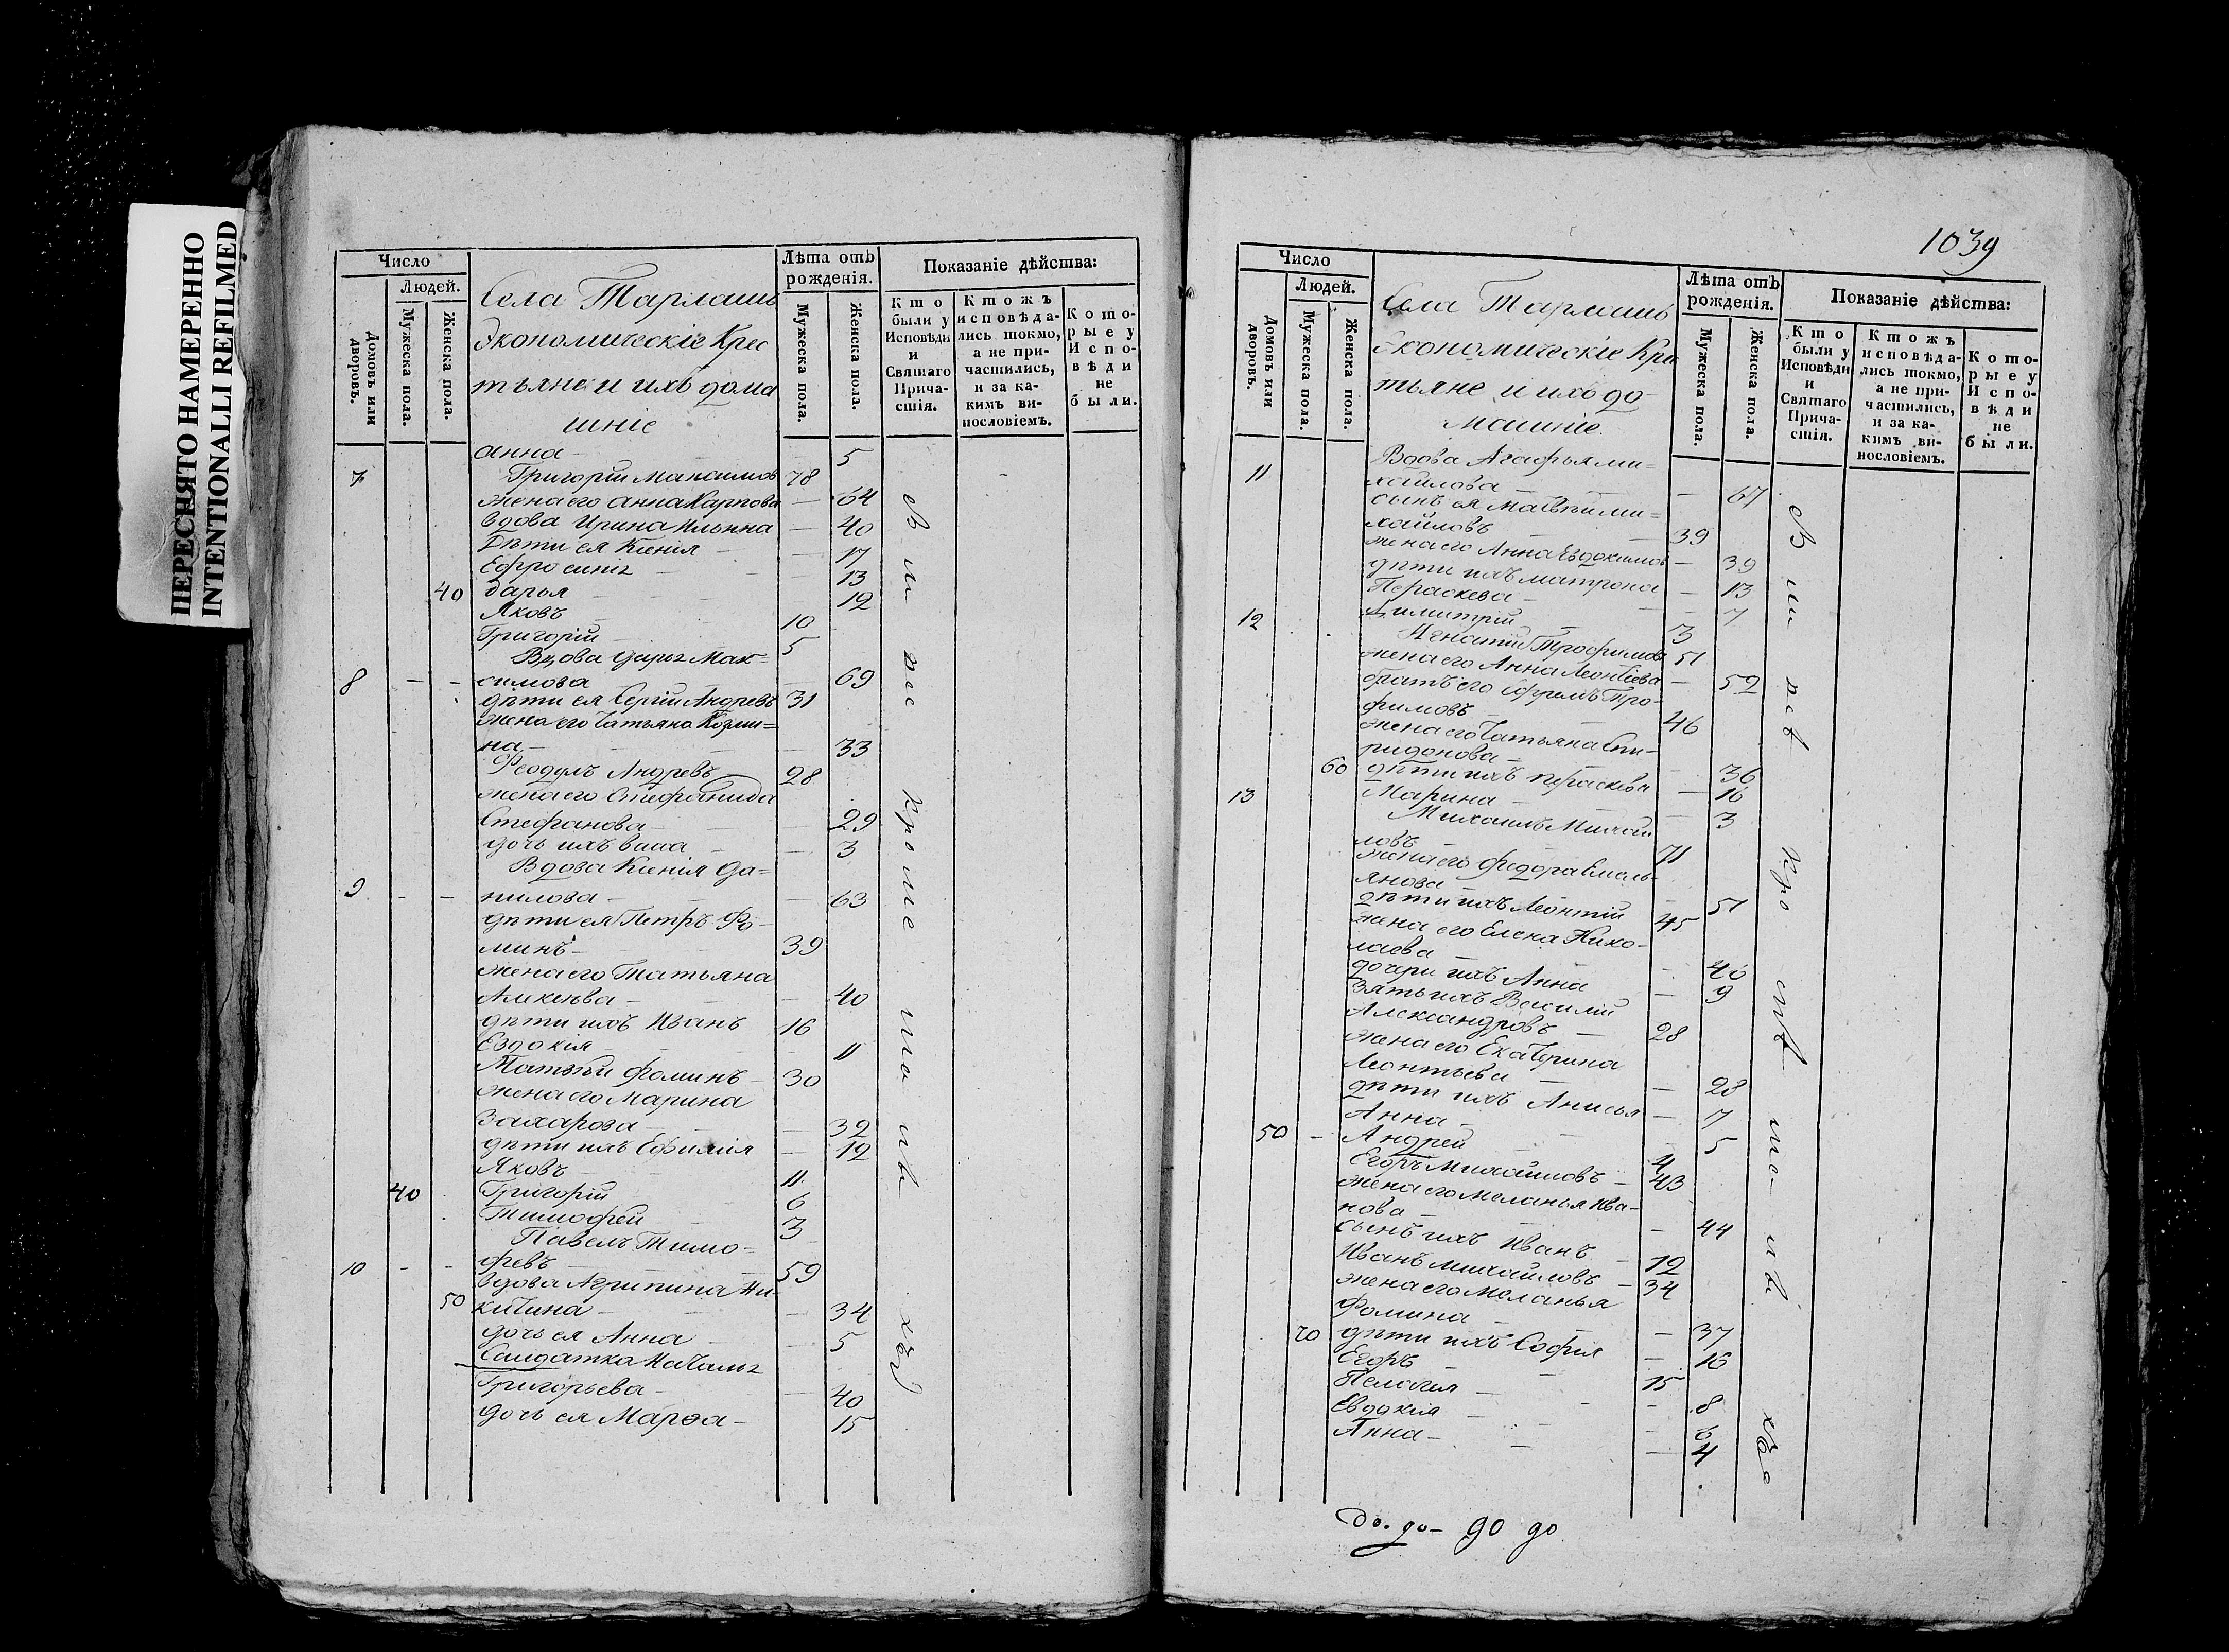 ПЕРЕСНЯТО НАМЕРЕННО
INTENTIONALLI REFILMED
Число
Людей.
Домовъ или дворовъ.
Мужеска пола.
Женска пола.
Села Тарлашъ
Экономическіе Крес
тьяне и ихъ дома
шніе
Лѣта отъ рожденія.
Мужеска пола.
Женска пола.
Показаніе дѣйства:
Кто были у Исповѣди и Святаго Причастія.
Ктожъ исповѣдались токмо, а не причастились, и за какимъ винословіемъ.
Которые у Исповѣди не были.
анна 5
7 Григорій Максимов 78
жена его анна Карпова 64
вдова Ирина Ильина 40
Дѣти ея Ксенія 17
Ефросинь 13
40 дарья 12
Яковъ 10
Григорій 5
Вдова дарь Мак=
8 симова 69
дѣти ея Сергій Андревъ 31
жена его Татьяна Козми=
на 33
Феодулъ Андревъ 28
жена его Стефанида
Стефанова 29
дочь ихъ васса 3
Вдова Ксенія Да=
9 нилова 63
дѣти ея Петръ Фо
минъ 39
жена его Татьяна
Алексѣва 40
дѣти ихъ Иванъ 16
Евдокія 11
Матвѣй фоминъ 30
жена его Марина
Захарова 32
дѣти ихъ Ефимія 12
Яковъ 11
40 Григорій 6
Тимофей 3
Павелъ Тимо=
10 февъ 59
вдова Агрипина Ни-
50 китина 34
дочь ея Анна 5
Салдатка Наталь
Григорьева 40
дочь ея Марѳа 15
1039
Число
Людей.
Домовъ или дворовъ.
Мужеска пола.
Женска пола.
Села Тарлашъ
Экономическіе Крес
тьяне и ихъ до-
машніе.
Лѣта отъ рожденія.
Мужеска пола.
Женска пола.
Показаніе дѣйства:
Кто были у Исповѣди и Святаго Причастія.
Ктожъ исповѣдались токмо, а не причастились, и за какимъ винословіемъ.
Которые у Исповѣди не были.
11 Вдова Агафья ми=
хайлова 67
сынъ ея Матвѣй ми=
хайловъ 39
жена его Анна Евдокимов 39
дѣти ихъ матрона 13
Пераскева 7
12 Димитрій 3
Игнатий Трофимов 51
жена его Анна Леонтіева 52
братъ его Ефремъ Тро-
фимовъ 46
жена его Татьяна Спи-
ридонова 36
60 дѣти ихъ пераскева 16
13 Марина 3
Михаилъ Михай
ловъ 71
жена его федора Емель-
янова 51
дѣти ихъ Леонтій 45
жена его Елена Нико-
лаева 40
дочери ихъ Анна 9
Зять ихъ Василій
Александровъ 28
жена его Екатерина
Леонтьева 28
дѣти ихъ Анисья 7
Анна 5
50 Андрей 4
Егоръ Михайловъ 43
жена его Меланья Ива-
нова 44
сынъ ихъ Иванъ 12
Иванъ михайловъ 34
жена его Меланья
Фомина 37
70 дѣти ихъ Софія 16
Егоръ 15
Пелагія 8
Евдокія 6
Анна 4